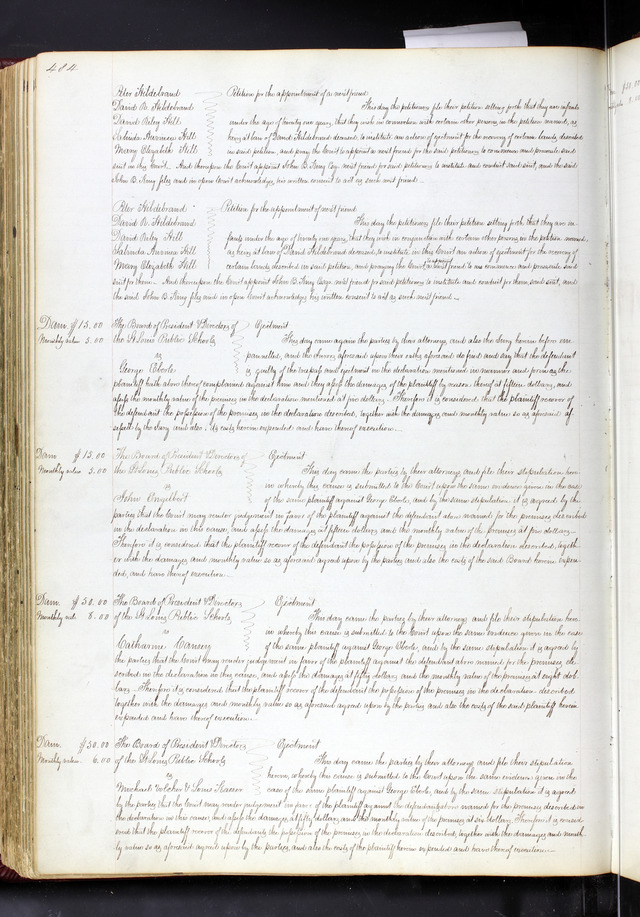 484.
Peter Hildebrand
David R. Hildebrand
David Riley Hill
Malinda Hill
Mary Elizabeth Hill
Petition for the appointment of a next friend
This day the petitioners file their petition setting forth that they are infants
under the age of twenty one years, that they wish in connection with certain other persons, in the petition named, as
heirs at law of David Hildebrand deceased, to institute an action of ejectment for the recovery of certain lands, described
in said petition, and pray the Court to appoint a next friend for the said petitioners to commence and prosecute said
suit in this Court. And thereupon the Court appoint John B. King Esq. next friend for said petitioners to institute and conduct said suit, and the said
John B. King files and in open Court acknowledges his written consent to act as such next friend.
Peter Hildebrand
David R. Hildebrand
David Riley Hill
Hill
Mary Elizabeth Hill
Petition for the appointment of next friend
This day the petitioners file their petition setting forth, that they are in-
fants under the age of twenty one years, that they wish in conjunction with certain other persons in the petition named
as heirs at law of David Hildebrand deceased, to institute in this Court an action of ejectment for the recovery of
certain lands described in said petition, and praying the Court to appoint a next friend to commence and prosecute said
suit for them. And thereupon the Court appoint John B. King Esqr. next friend for said petitioners to institute and conduct for them said suit, and
the said John B. King files and in open Court acknowledges his written consent to act as such next friend.
Dam. $ 15.00
Monthly value 5.00
The Board of President & Directors of
the St Louis Public Schools
vs
George Eberle
Ejectment
This day came again the parties by their attorneys, and also the Jury herein before em-
panneled, and the Jurors aforesaid upon their oaths aforesaid do find and say that the defendant
is guilty of the trespass and ejectment in the declaration mentioned in manner and form as the
plaintiff hath above thereof complained against him and they assess the damages of the plaintiff by reason thereof at fifteen dollars, and
assess the monthly value of the premises in the declaration mentioned at five dollars. Therefore it is considered that the plaintiff recover of
the defendant the possession of the premises, in the declaration described, together with the damages and monthly value so as aforesaid as-
sessed by the Jury and also its costs herein expended and have thereof execution.
Dam $ 15.00
Monthly value 5.00
The Board of President & Directors of
the St Louis Public Schools
vs
John Engelbert
Ejectment
This day came the parties by their attorneys and file their stipulation here-
in whereby this cause is submitted to the Court upon the same evidence given in the case
of the same plaintiff against George Eberle, and by the same stipulation it is agreed by the
parties that the Court may render judgement in favor of the plaintiff against the defendant above named for the premises described
in the declaration in this cause, and assess the damages at fifteen dollars and the monthly value of the premises at five dollars.
Therefore it is considered that the plaintiff recover of the defendant the possession of the premises in the declaration described, togeth-
er with the damages, and monthly value so as aforesaid agreed upon by the parties and also the costs of the said Board herein expen-
ded, and have thereof execution.
Dam. $ 50.00
Monthly val. 8.00
The Board of President & Directors
of the St Louis Public Schools
vs
Catharine
Ejectment
This day came the parties by their attorneys and file their stipulation here-
in whereby this cause is submitted to the Court upon the same evidence given in the case
of the same plaintiff against George Eberle, and by the same stipulation it is agreed by
the parties that the Court may render judgement in favor of the plaintiff against the defendant above named for the premises de-
scribed in the declaration in this cause, and assess the damages at fifty dollars, and the monthly value of the premises at eight dol-
lars. Therefore it is considered that the plaintiff recover of the defendant the possession of the premises in the declaration described
together with the damages and monthly value so as aforesaid agreed upon by the parties and also the costs of the said plaintiff herein
expended and have thereof execution.
Dam. $ 50.00
Monthly value 6.00
The Board of President & Directors
of the St Louis Public Schools
vs
Michael & Louis
Ejectment
This day came the parties by their attorneys and file their stipulation
herein, whereby this cause is submitted to the Court upon the same evidence given in the
case of the same plaintiff against George Eberle, and by the same stipulation it is agreed
by the parties that the Court may render judgement in favor of the plaintiff against the defendants above named for the premises described in
the declaration in this cause, and assess the damages at fifty dollars, and the monthly value of the premises at six dollars. Therefore it is consid-
ered that the plaintiff recover of the defendants the possession of the premises, in the declaration described, together with the damages and month-
ly value so as aforesaid agreed upon by the parties, and also the costs of the plaintiff herein expended and have thereof execution.